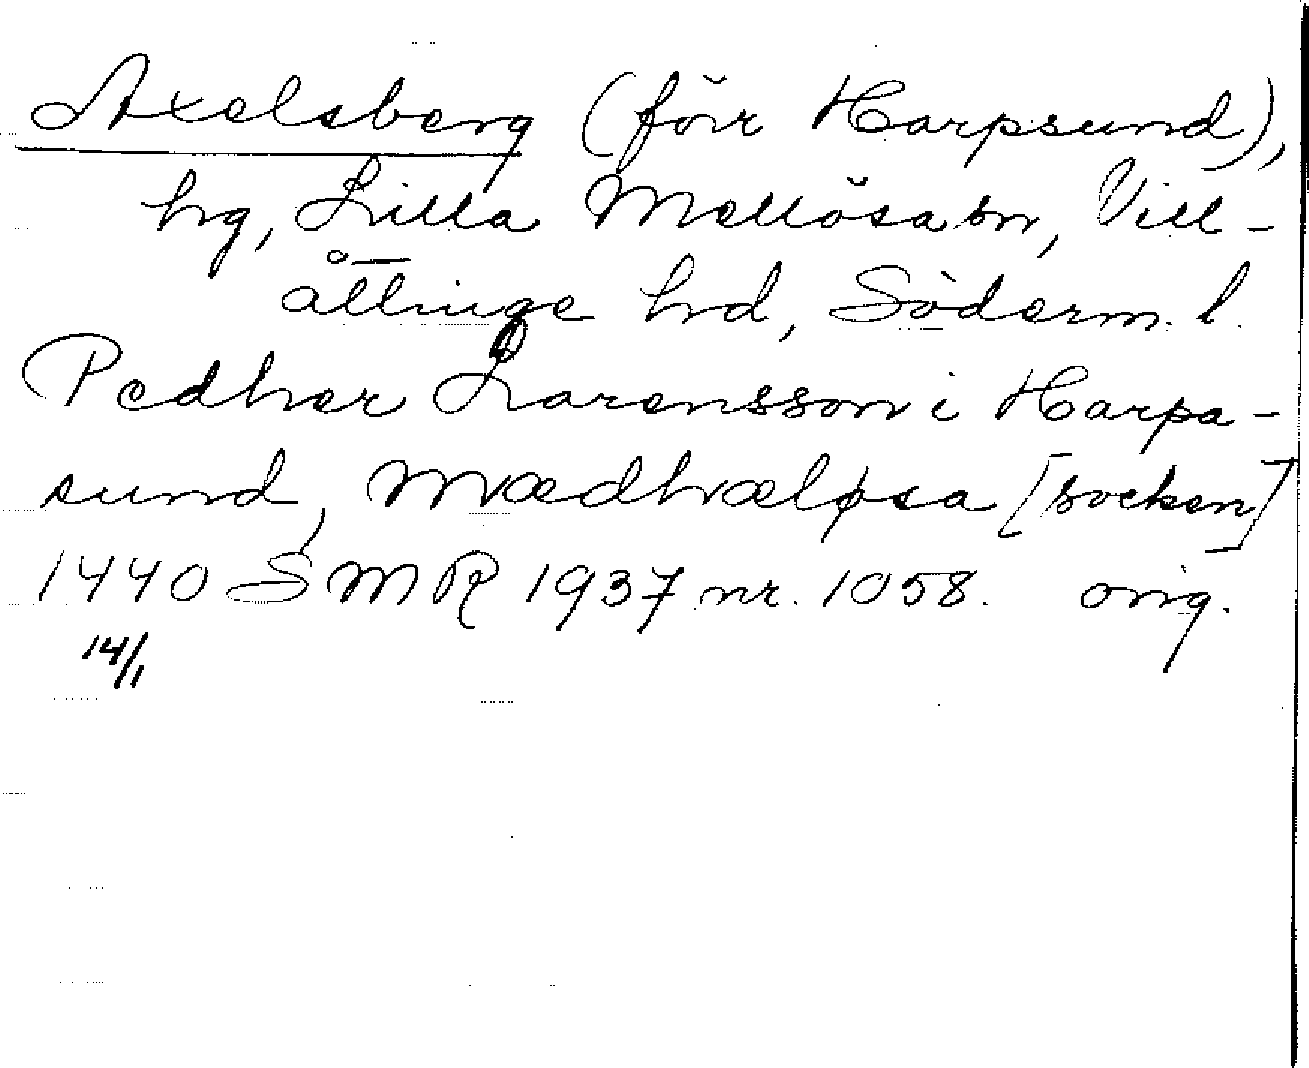 Axelsberg (förr Harpsund),
hg, Lilla Mellösa sn, Vill-
åttinge hd, Söderm. l.
Pedher Larensson i Harpa-
sund, Mædhæløsa [socken]
1440 SMR 1937 nr. 1058. orig.
14/1